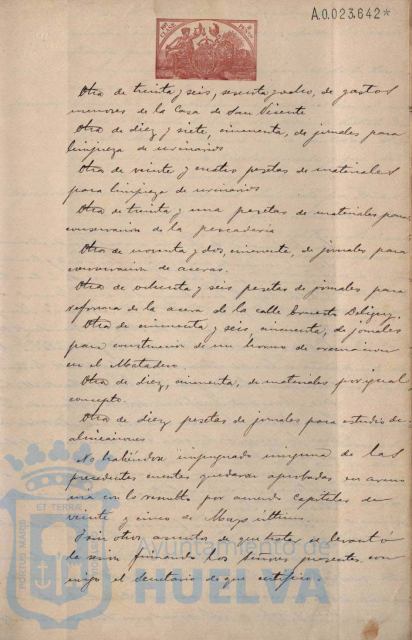 A.0.023.642*
Otra de treinta y seis, sesenta y ocho, de gastos
menores de la Casa de San Vicente
Otra de diez y siete, cincuenta, de jornales para
limpieza de urinarios
Otra de veinte y cuatro pesetas de materiales
para limpieza de urinarios
Otra de treinta y una pesetas de materiales para
conservación de la pescadería
Otra de noventa y dos, cincuenta, de jornales para
conservación de aceras.
Otra de ochenta y seis pesetas de jornales para
reforma de la acera de la calle Ernesto Deligny.
Otra de cincuenta y seis, cincuenta, de jornales
para construcción de un horno de cremación
en el Matadero
Otra de diez, cincuenta, de materiales por igual
concepto.
Otra de diez pesetas de jornales para estudio de
alineaciones
No habiéndose impugnado ninguna de las
precedentes cuentas quedaron aprobadas en armo
nía con lo resuelto por acuerdo capitular de
veinte y cinco de Mayo último.
Y sin otros asuntos de que tratar se levantó
la sesión firmando los Señores presentes con
migo el Secretario de que certifico.
ET TERRA
PORTUS MARIS
Ayuntamiento de
HUELVA